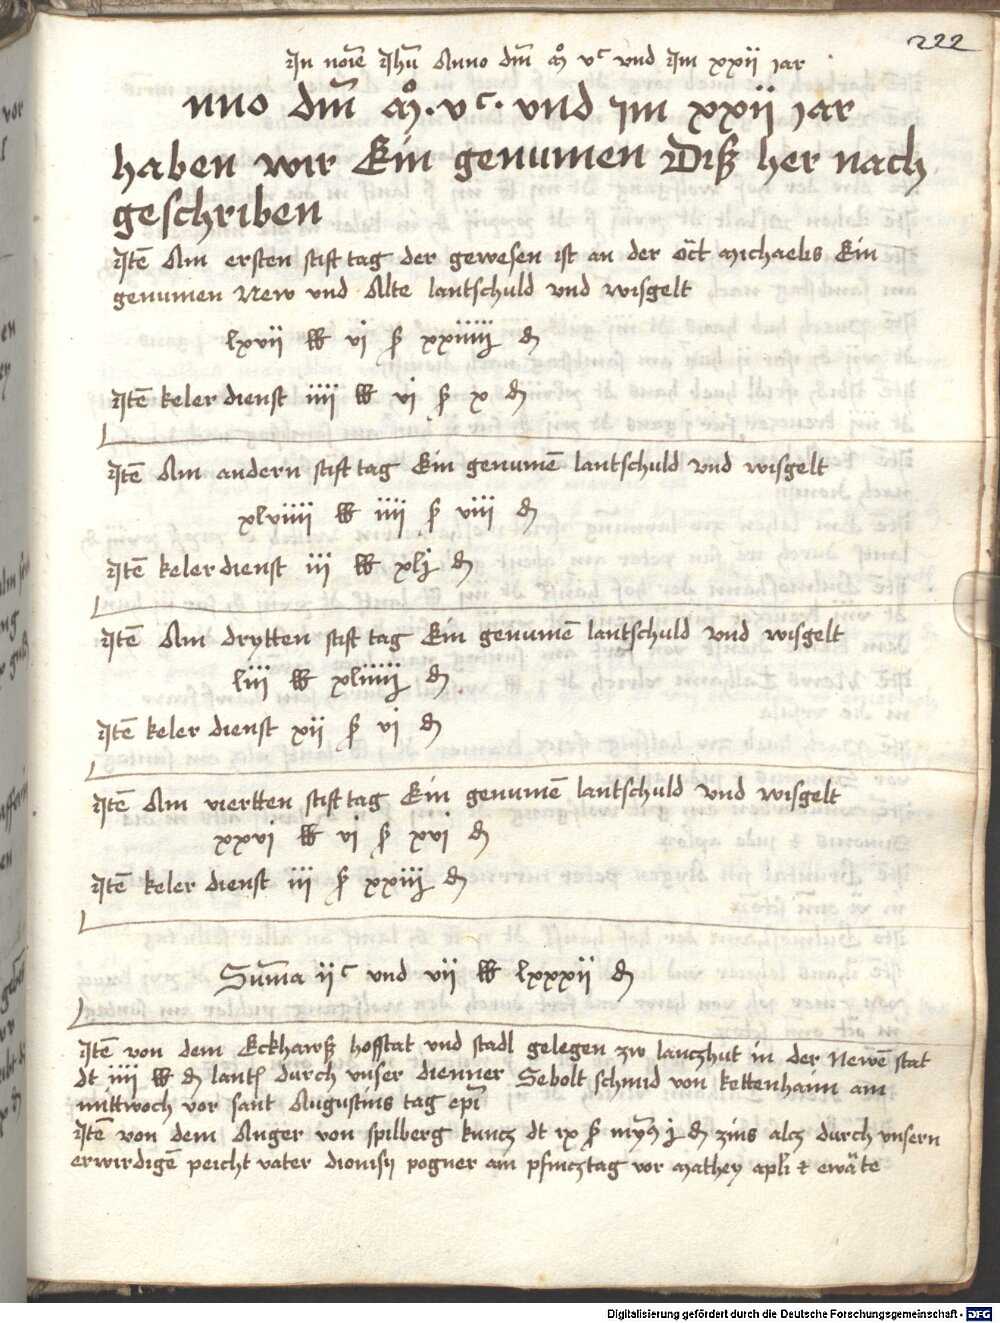 222
In noīe Ihū Anno dm̄ m̊ vᶜ und Im xxii jar
nno dm̄ m̊. vᶜ. und Im xxii jar
haben wir Ein genumen Diß her nach
geschriben
Itē Am ersten stift tag der gewesen ist an der oc̄t Michaelis Ein
genumen New und Alte lantschuld und wisgelt
lxvii ℔ vj ß xxiiiij ₰
Itē keler dienst iiij ℔ vj ß x ₰
Itē Am andern stift tag Ein genumē lantschuld und wisgelt
xlviiii ℔ iiii ß viii ₰
Itē keler dienst iij ℔ xlj ₰
Itē Am drytten stift tag Ein genumē lantschuld und wisgelt
liii ℔ xliiiij ₰
Itē keler dienst xii ß vj ₰
Itē Am viertten stift tag Ein genumē lantschuld und wisgelt
xxvj ℔ vj ß xvj ₰
Itē keler dienst iij ß xxiij ₰
Sum̄a iiᶜ und vii ℔ lxxxii ₰
Itē von dem Eckharß hofstat und stadl gelegen zw lanczhut in der Newē stat
dt iiij ℔ ₰ lantß durch unser dienner Sebolt schmid von kettenhaim am
mittwoch vor sant Augustins tag ep̄i
Itē von dem Anger von spilberg kuncz dt ix ß j ₰ zins alcz durch unsern
erwirdigē peicht vater dionisij pogner am pfincztag vor Mathey apl̄i &amp; ewāte
Digitalisierung gefördert durch die Deutsche Forschungsgemeinschaft - DFG